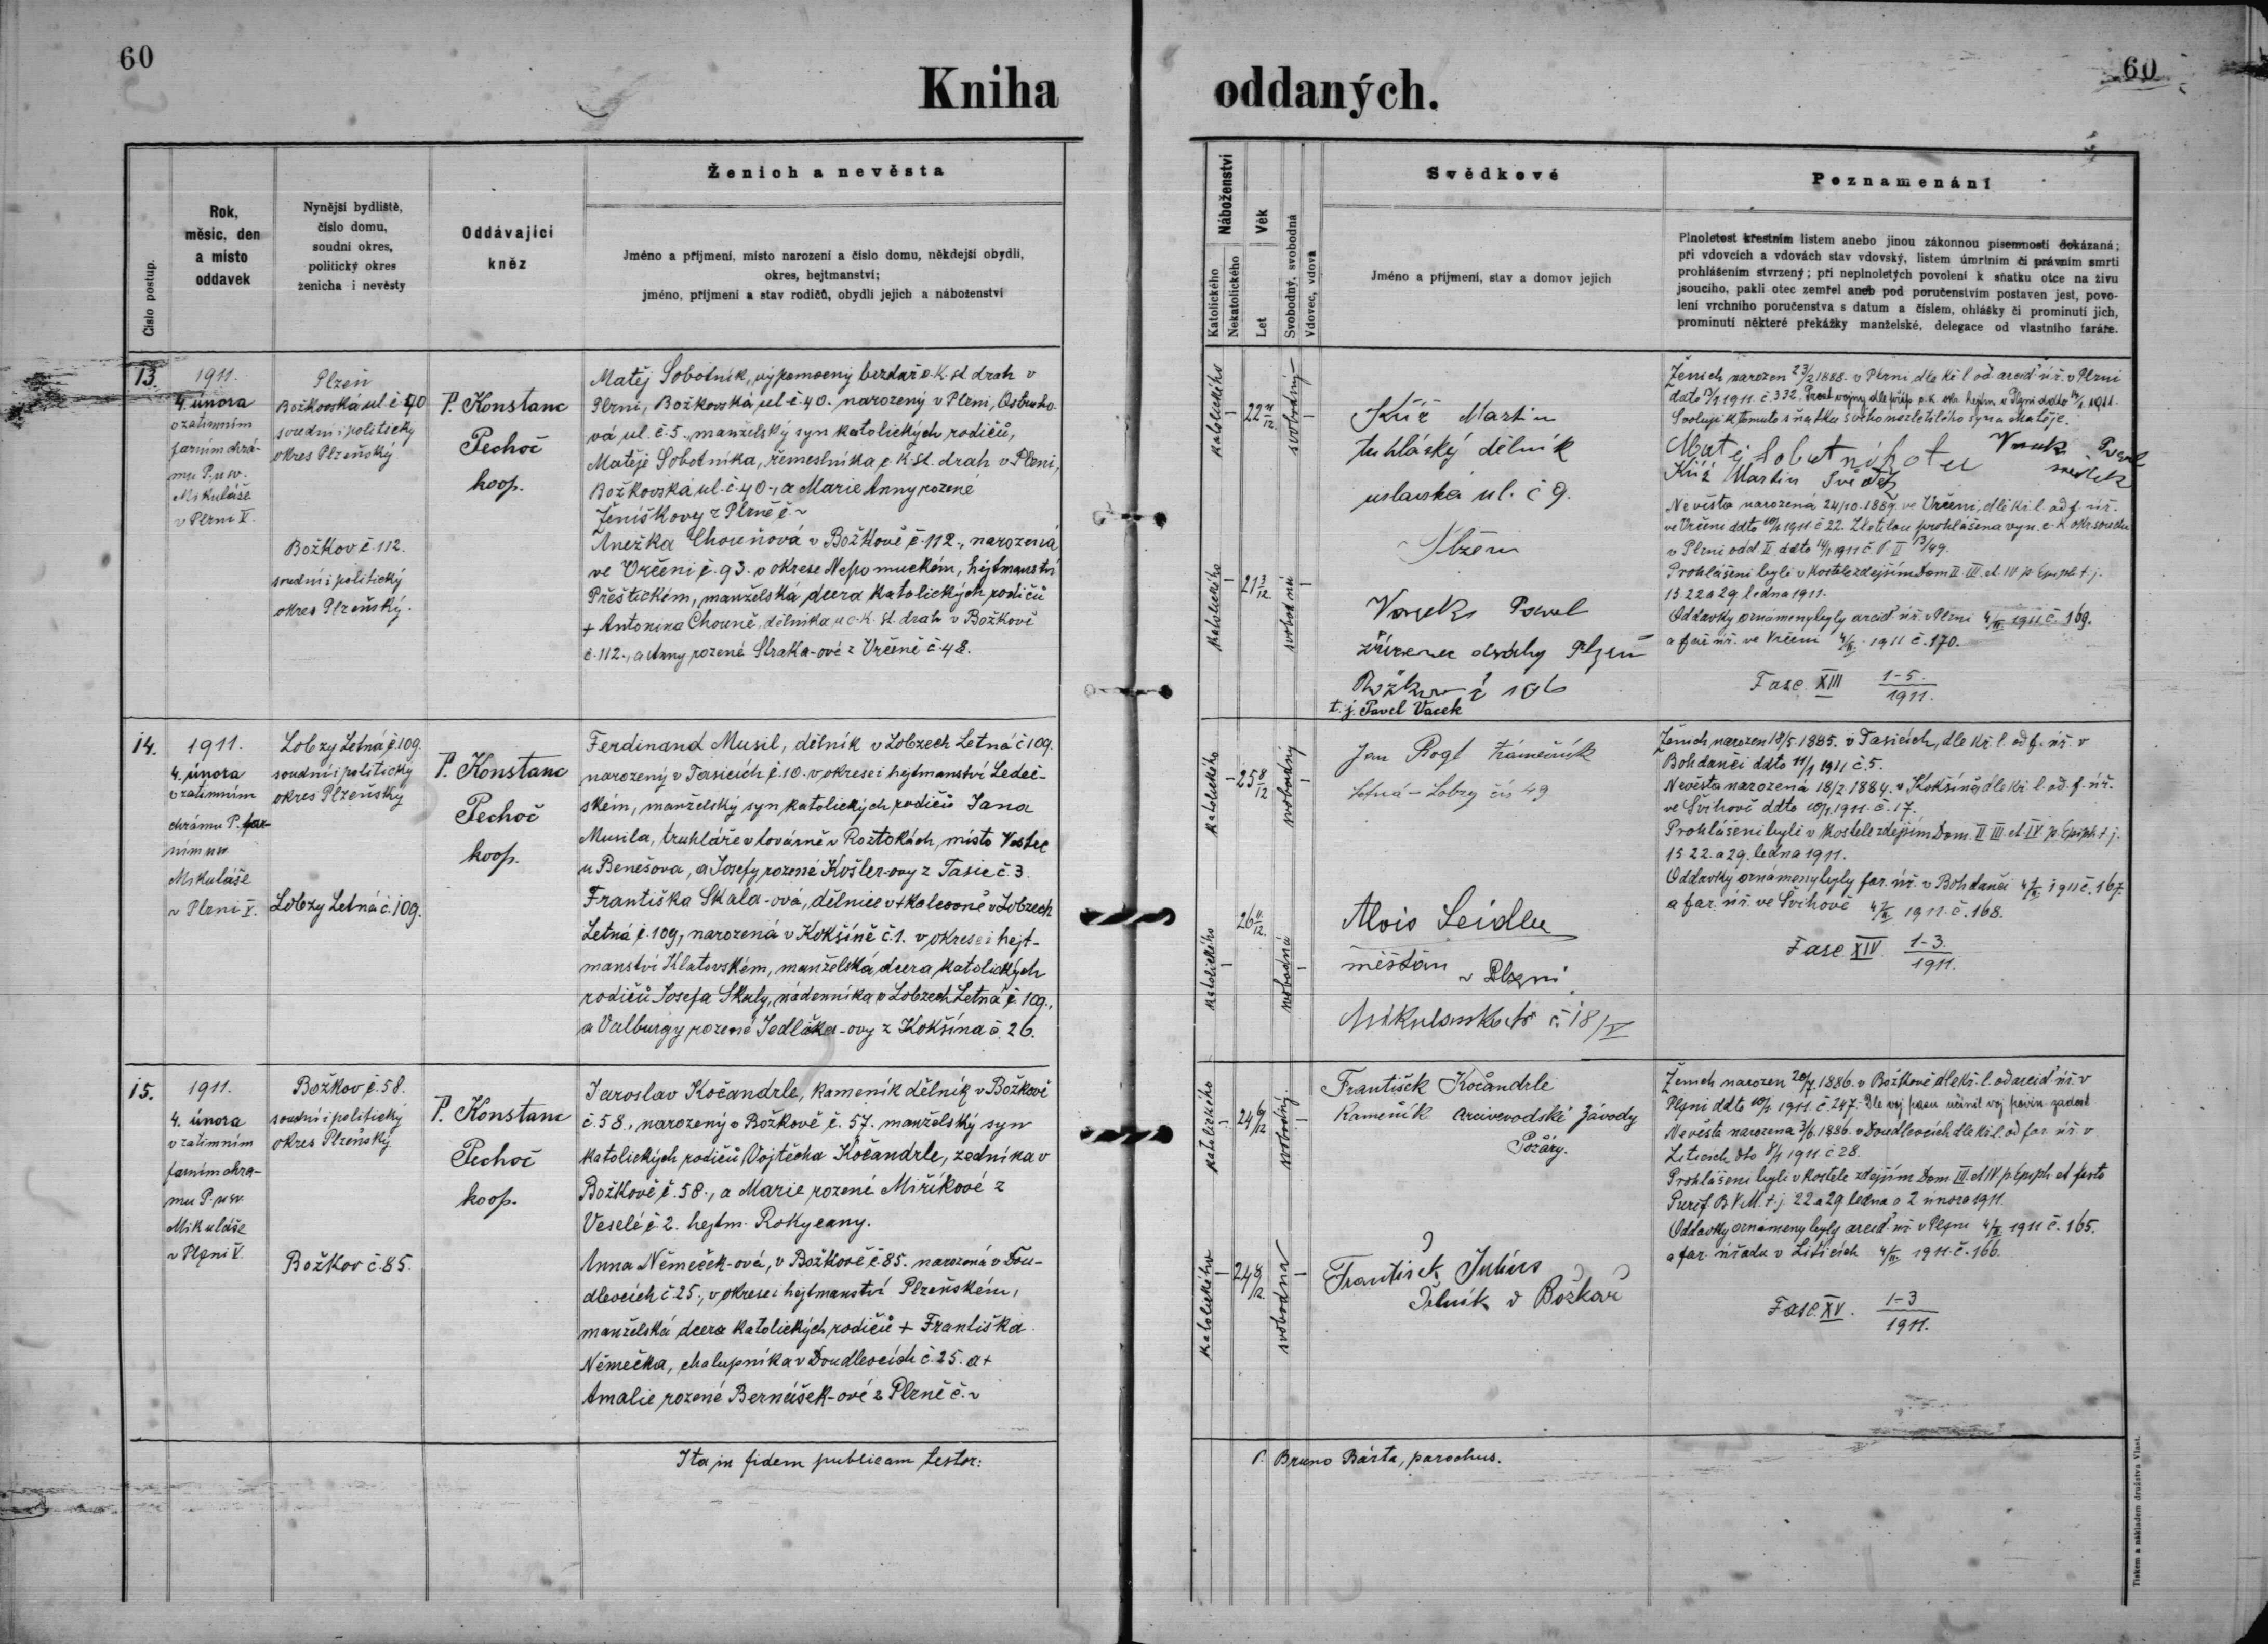 60
60
Kniha oddaných.
Číslo postup.
Rok,
měsíc, den
a místo
oddavek
Nynější bydliště,
číslo domu,
soudní okres,
politický okres
ženicha i nevěsty
Oddávající
kněz
Ženich a nevěsta
Jméno a příjmení, místo narození a číslo domu, někdejší obydlí,
okres, hejtmanství;
jméno, příjmení a stav rodičů, obydlí jejich a náboženství
Náboženství
Katolického
Nekatolického
Věk
Let
Svobodný, svobodná
Vdovec, vdova
Svědkové
Jméno a příjmení, stav a domov jejich
Poznamenání
Plnoletost křestním listem anebo jinou zákonnou písemností dokázaná;
při vdovcích a vdovách stav vdovský, listem úmrtním či právním smrti
prohlášením stvrzený; při neplnoletých povolení k sňatku otce na živu
jsoucího, pakli otec zemřel aneb pod poručenstvím postaven jest, povo-
lení vrchního poručenstva s datum a číslem, ohlášky či prominutí jich,
prominutí některé překážky manželské, delegace od vlastního faráře.
13.
1911.
4. února
v zatimním
farním chrá-
mu P. u sv.
Mikuláše
v Plzni V.
Plzeň
Božkovská ul. č. 40
soudní i politický
okres Plzeňský
Božkov č. 112.
soudní i politický
okres Plzeňský.
P. Konstanc
Pechoč
koop.
Matěj Sobotník, výpomocný brzdař c. k. st. drah v
Plzni, Božkovská ul. č. 40. narozený v Plzni, Ostruho-
vá ul. č. 5., manželský syn katolických rodičů,
Matěje Sobotníka, řemeslníka c. k. st. drah v Plzni,
Božkovská ul. č. 40., a Marie Anny rozené
Ženíškovy z Plzně č. ~
Anežka Chouňová v Božkově č. 112., narozená
ve Vrčeni č. 93. v okrese Nepomuckém, hejtmanství
Přeštickém, manželská dcera katolických rodičů
+ Antonína Chouně, dělníka u c. k. st. drah v Božkově
č. 112., a Anny rozené Straka-ové z Vrčeně č. 48.
katolického
22 11/12
svobodný
katolického
21 3/12
svobodná
Kříž Martin
truhlářský dělník
ul. č 9.
Plzeň
Vacek Pavel
zřízenec dráhy Plzeň
Božkov č 106
t. j. Pavel Vacek
Ženich narozen 23/2 1888. v Plzni, dle kř. l. od arcid. úř. v Plzni
Svoluji k tomuto sňatku svého nezletilého syna Matěje.
Matěj Sobotník otec
Vacek Pavel
svědek
Kříž Martin Svědek
Nevěsta narozená 24/10. 1889. ve Vrčeni, dle kř. l. od f. úř.
ve Vrčeni ddto 10/1 1911 č 22. Zletilou prohlášena vyn. c. k. okr. soudu
v Plzni odd. II ddto 14/1 1911 č. P. II 13/49.
Prohlášeni byli v kostele zdejším Dom II. III. et IV p. Epiph t. j.
15 22 a 29. ledna 1911.
Oddavky oznámeny byly arcid. úř. v Plzni 4/II 1911 č. 169.
a far. úř. ve Vrčeni 4/II. 1911 č. 170.
Fasc. XIII 1-5. / 1911.
14.
1911.
4. února
v zatimním
chrámu P. far-
ním u sv.
Mikuláše
v Plzni V.
Lobzy Letná č. 109.
soudní i politický
okres Plzeňský
Lobzy Letná č. 109.
P. Konstanc
Pechoč
koop.
Ferdinand Musil, dělník v Lobzech Letná č 109.
narozený v Tasicích č. 10. v okrese i hejtmanství Ledeč-
ském, manželský syn katolických rodičů Jana
Musila, truhláře v továrně v Roztokách, místo Vostec
u Benešova, a Josefy rozené Košler-ovy z Tasic č. 3.
Františka Skala-ová, dělnice v tkalcovně v Lobzech
Letná č. 109, narozená v Kokšíně č. 1. v okrese i hejt-
manství Klatovském, manželská dcera katolických
rodičů Josefa Skaly, nádenníka v Lobzech Letná č. 109.,
a Valburgy rozené Jedlička-ovy z Kokšína č. 26.
katolického
25 8/12
svobodný
katolického
26 11/12.
svobodná
Jan Rogl Zámečník
Letná - Lobzy čís 49
Alois Seidler
měšťan
v Plzni
č. 18/V
Ženich narozen 18/5 1885. v Tasicích, dle kř. l. od f. úř. v
Bohdanči ddto 11/1 1911 č. 5.
Nevěsta narozená 18/2. 1884. v Kokšíně, dle kř. l. od. f. úř.
ve Švihově ddto 10/1. 1911. č. 17.
Prohlášeni byli v kostele zdejším Dom. II III. et. IV p. Epiph t. j.
15 22. a 29. ledna 1911.
Oddavky oznámeny byly far. úř. v Bohdanči 4/II 1911 č. 167.
a far. úř. ve Švihově 4/II 1911. č. 168.
Fasc. XIV. 1-3. / 1911.
15.
1911.
4. února
v zatimním
farním chrá-
mu P. u sv.
Mikuláše
v Plzni V.
Božkov č. 58.
soudní i politický
okres Plzeňský
Božkov č. 85.
P. Konstanc
Pechoč
koop.
Jaroslav Kočandrle, kameník dělník v Božkově
č. 58., narozený v Božkově č. 57. manželský syn
katolických rodičů Vojtěcha Kočandrle, zedníka v
Božkově č. 58., a Marie rozené Miříkové z
Veselé č. 2. hejtm. Rokycany.
Anna Němeček-ová, v Božkově č. 85. narozená v Dou-
dlevcích č. 25., v okrese i hejtmanství Plzeňském,
manželská dcera katolických rodičů + Františka
Němečka, chalupníka v Doudlevcích č. 25. a +
Amalie rozené Bernášek-ové z Plzně č. ~
katolického
24 6/12
svobodný.
katolického
24 8/12.
svobodná
František Kočandrle
Kameník Arcivevodské Závody
Požáry.
František Julius
Dělník v Božkově
Ženich narozen 20/7. 1886. v Božkově dle kř. l. od arcid. úř. v
Plzni ddto 10/1 1911. č. 247. Dle voj. pasu učinil voj. povin. zadost
Nevěsta narozena 3/6. 1886. v Doudlevcích dle kř. l. od far. úř. v
Liticích dto 8/1 1911 č 28.
Prohlášeni byli v kostele zdejším Dom III. et IV p. Epiph et festo
Purif. B. V. M. t. j. 22 a 29 ledna a 2 února 1911.
Oddavky oznámeny byly arcid. úř. v Plzni 4/II 1911 č. 165.
a far. úřadu v Liticích 4/II. 1911. č. 166.
Fasc. XV. 1-3 / 1911.
Ita in fidem publicam testor:
P. Bruno Bárta, parochus.
Tiskem a nákladem družstva Vlast.